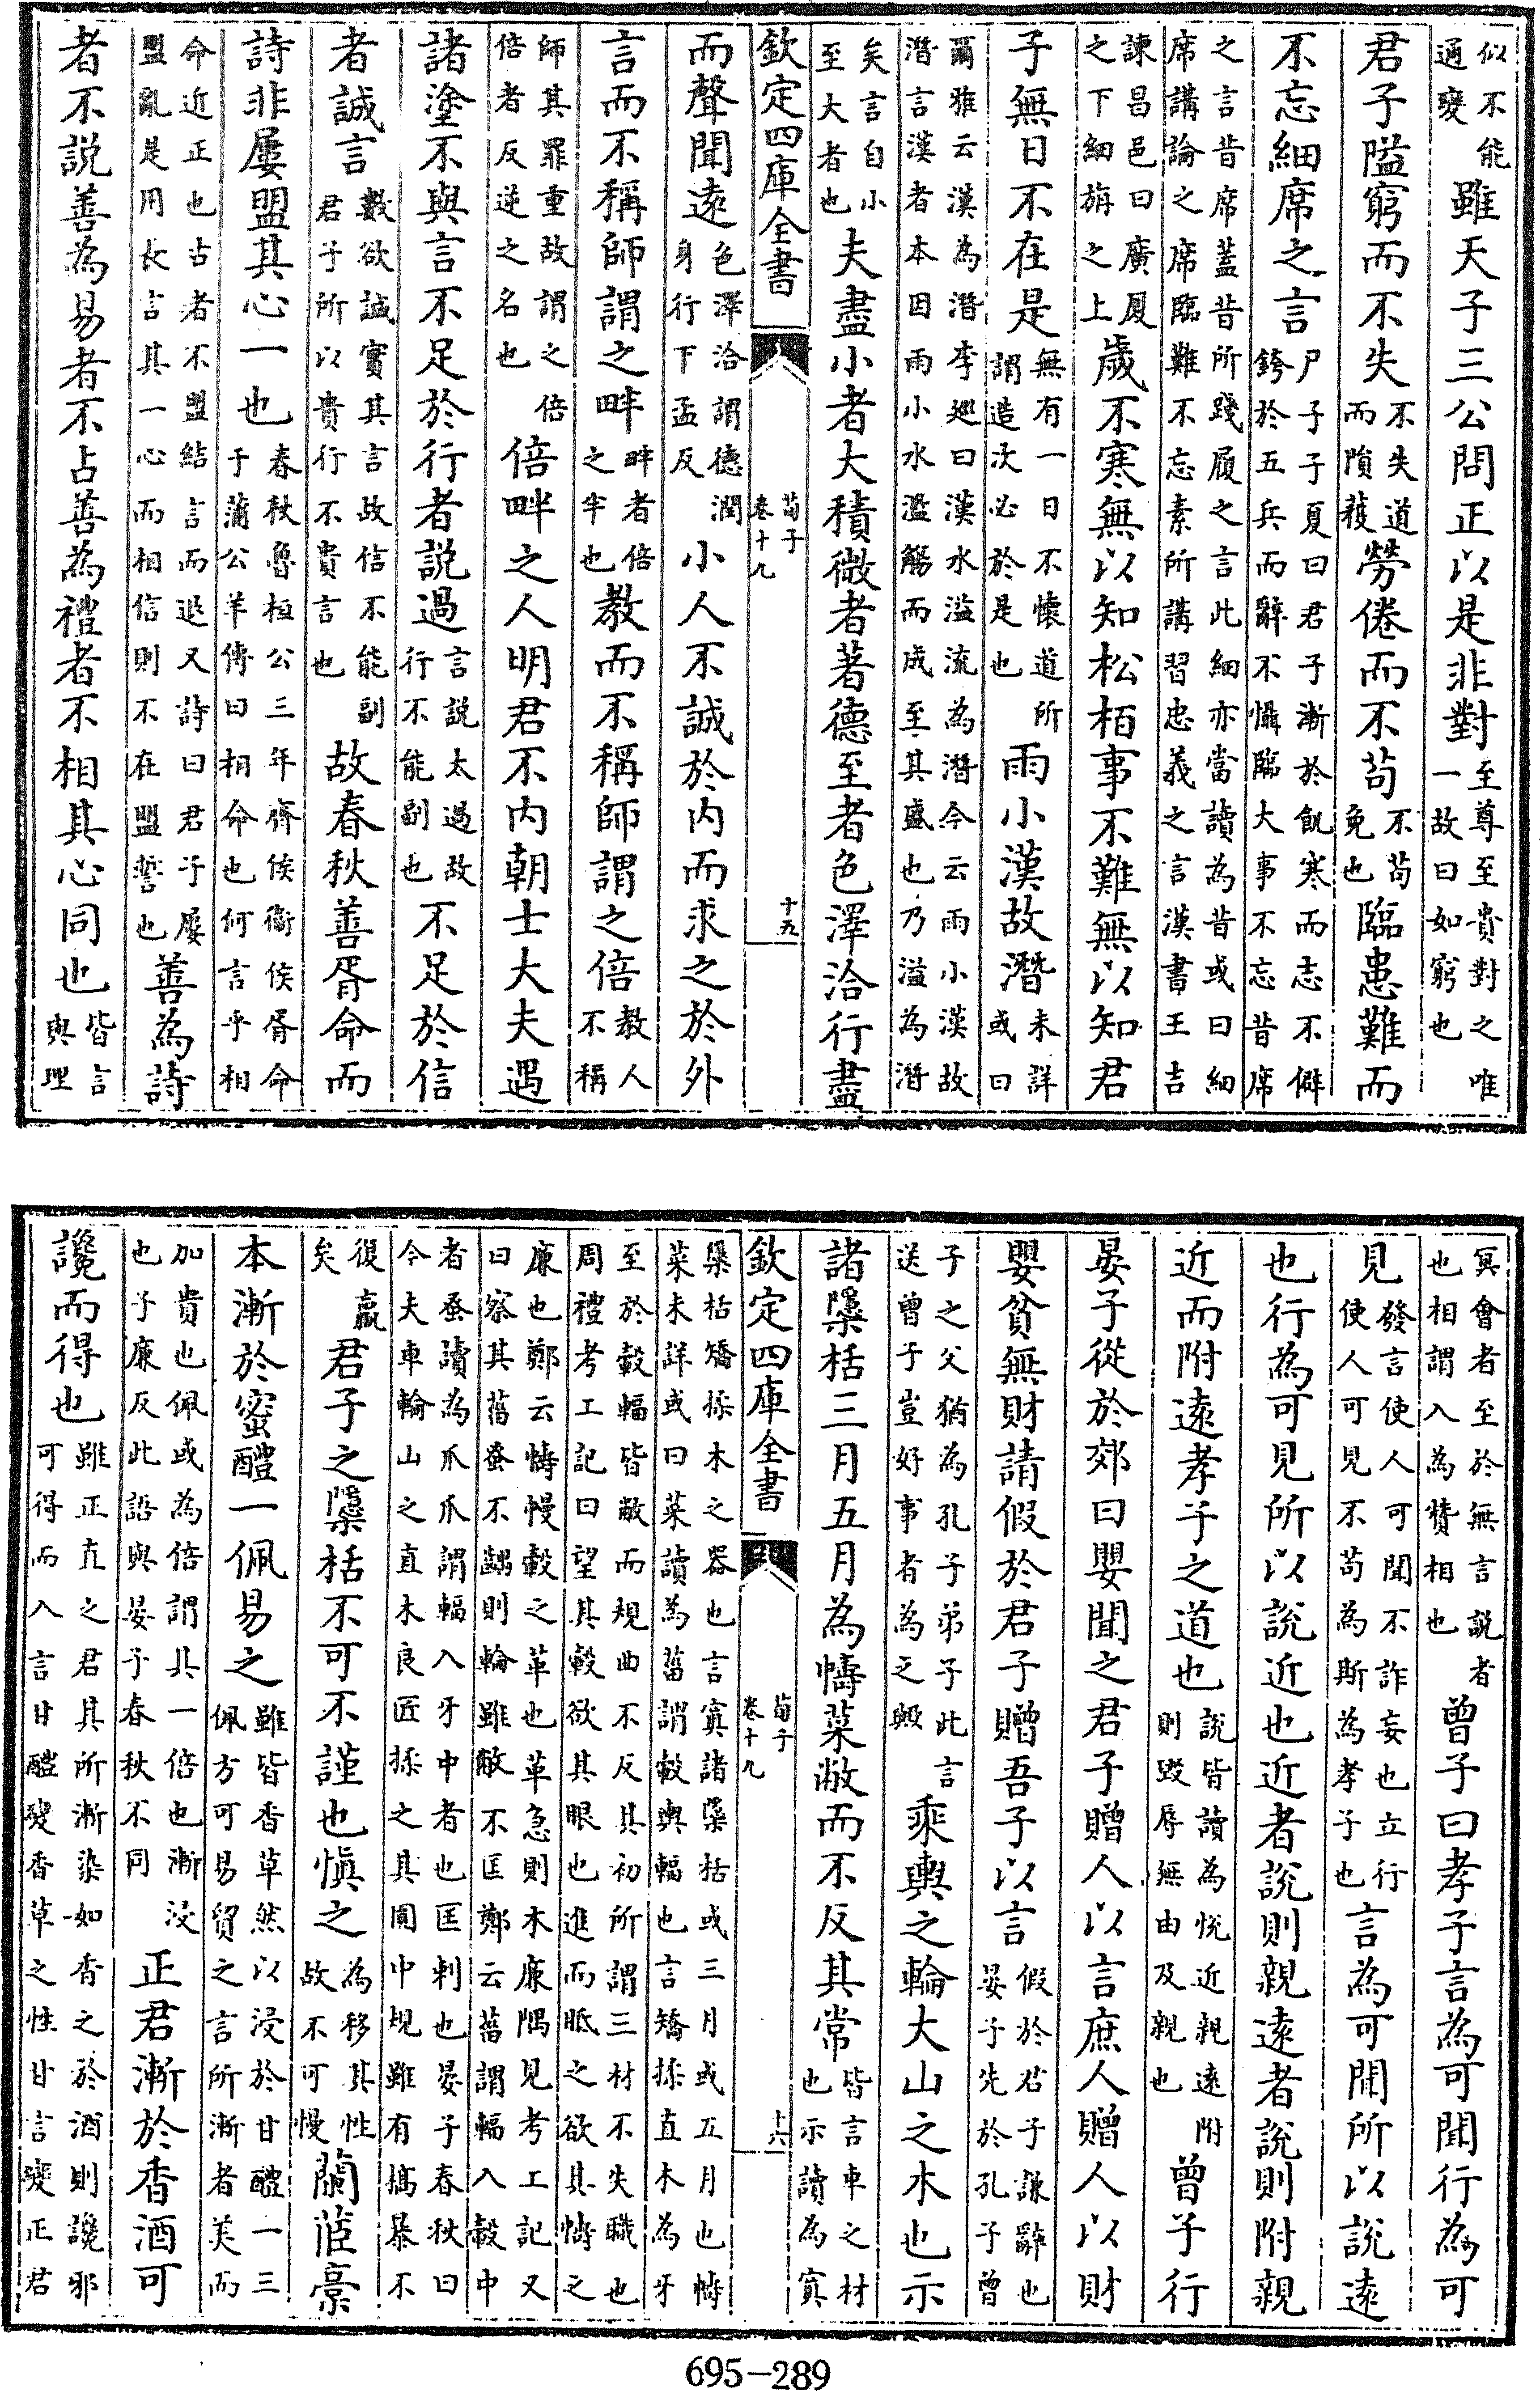 似不能通變雖天子三公問正以是非對至尊至貴對之唯一故曰如窮也
君子隘窮而不失不失道而隕穫勞倦而不苟不苟免也臨患難而
不忘細席之言尸子子夏曰君子漸於飢寒而志不僻銙於五兵而辭不懾臨大事不忘昔席
之言昔席蓋昔所踐履之言此細亦當讀為昔或曰細席講論之席臨難不忘素所講習忠義之言漢書王吉
諫昌邑曰廣厦之下細旃之上歲不寒無以知松栢事不難無以知君
子無日不在是無有一日不懷道所謂造次必於是也雨小漢故潛未詳或曰
爾雅云漢為潛李廵曰漢水溢流為潛今云雨小漢故潛言漢者本因雨小水濫觴而成至其盛也乃溢為潛
矣言自小至大者也夫盡小者大積微者著德至者色澤洽行盡
欽定四庫全書 荀子卷十九 十五
而聲聞遠色澤洽謂德潤身行下孟反小人不誠於内而求之於外
言而不稱師謂之畔畔者倍之半也教而不稱師謂之倍教人不稱
師其罪重故謂之倍倍者反逆之名也倍畔之人明君不内朝士大夫遇
諸塗不與言不足於行者說過言說太過故行不能副也不足於信
者誠言數欲誠實其言故信不能副君子所以貴行不貴言也故春秋善胥命而
詩非屢盟其心一也春秋魯桓公三年齊侯衞侯胥命于蒲公羊傳曰相命也何言乎相
命近正也古者不盟結言而退又詩曰君子屢盟亂是用長言其一心而相信則不在盟誓也善為詩
者不説善為易者不占善為禮者不相其心同也皆言與理
冥會者至於無言說者也相謂入為贊相也曾子曰孝子言為可聞行為可
見發言使人可聞不詐妄也立行使人可見不苟為斯為孝子也言為可聞所以說遠
也行為可見所以說近也近者說則親遠者說則附親
近而附遠孝子之道也說皆讀為悅近親遠附則毀辱無由及親也曾子行
晏子從於郊曰嬰聞之君子贈人以言庶人贈人以財
嬰貧無財請假於君子贈吾子以言假於君子謙辭也晏子先於孔子曾
子之父猶為孔子弟子此言送曾子豈好事者為之歟乘輿之輪大山之木也示
諸檃栝三月五月為幬菜敝而不反其常皆言車之材也示讀為寘
檃栝矯揉木之器也言寘諸檃栝或三月或五月也幬菜未詳或曰菜讀為菑謂轂與輻也言矯揉直木為牙
至於轂輻皆敝而規曲不反其初所謂三材不失職也周禮考工記曰望其轂欲其眼也進而眡之欲其幬之
廉也鄭云幬幔轂之革也革急則木廉隅見考工記又曰察其菑蚤不齵則輪雖敝不匡鄭云菑謂輻入轂中
者蚤讀為爪爪謂輻入牙中者也匡刺也晏子春秋曰今夫車輪山之直木良匠揉之其圓中規雖有槁暴不
復贏矣君子之檃栝不可不謹也慎之為移其性故不可慢蘭茝稾
本漸於蜜醴一佩易之雖皆香草然以浸於甘醴一三佩方可易貿之言所漸者美而
加貴也佩或為倍謂其一倍也漸浸也子廉反此語與晏子春秋不同正君漸於香酒可
讒而得也雖正直之君其所漸染如香之於酒則讒邪可得而入言甘醴變香草之性甘言變正君
695-289